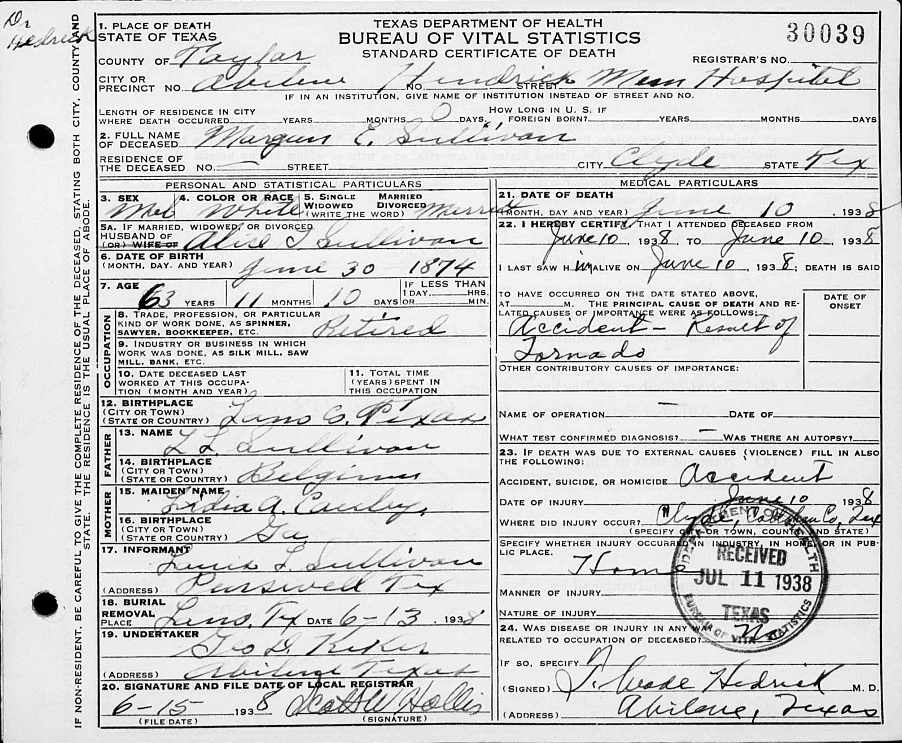 Dr
Hedrick
TEXAS DEPARTMENT OF HEALTH
BUREAU OF VITAL STATISTICS
STANDARD CERTIFICATE OF DEATH
30039
1. PLACE OF DEATH
STATE OF TEXAS
COUNTY OF Taylor
REGISTRAR'S NO.
CITY OR
PRECINCT NO. Abilene NO. Hendrick STREET Mem Hospital
IF IN AN INSTITUTION, GIVE NAME OF INSTITUTION INSTEAD OF STREET AND NO.
LENGTH OF RESIDENCE IN CITY
WHERE DEATH OCCURRED YEARS MONTHS 0 DAYS. HOW LONG IN U. S. IF
FOREIGN BORN? YEARS MONTHS DAYS
2. FULL NAME
OF DECEASED E. Sullivan
RESIDENCE OF
THE DECEASED NO. STREET CITY Clyde STATE Tex
PERSONAL AND STATISTICAL PARTICULARS
3. SEX 4. COLOR OR RACE 5. SINGLE MARRIED
WIDOWED DIVORCED
(WRITE THE WORD)
White Married
5A. IF MARRIED, WIDOWED, OR DIVORCED
HUSBAND OF
(OR) WIFE OF Sullivan
6. DATE OF BIRTH
(MONTH, DAY, AND YEAR) June 30 - 1874
7. AGE 63 YEARS 11 MONTHS 10 DAYS IF LESS THAN
1 DAY HRS.
OR MIN.
OCCUPATION
8. TRADE, PROFESSION, OR PARTICULAR
KIND OF WORK DONE, AS SPINNER,
SAWYER, BOOKKEEPER, ETC. Retired
9. INDUSTRY OR BUSINESS IN WHICH
WORK WAS DONE, AS SILK MILL, SAW
MILL, BANK, ETC.
10. DATE DECEASED LAST
WORKED AT THIS OCCUPA-
TION (MONTH AND YEAR)
11. TOTAL TIME
(YEARS) SPENT IN
THIS OCCUPATION
12. BIRTHPLACE
(CITY OR TOWN)
(STATE OR COUNTRY) Co. Texas
FATHER
13. NAME
L L Sullivan
14. BIRTHPLACE
(CITY OR TOWN)
(STATE OR COUNTRY) Belgium
MOTHER
15. MAIDEN NAME
Lidia A.
16. BIRTHPLACE
(CITY OR TOWN)
(STATE OR COUNTRY) Ga
17. INFORMANT
L. Sullivan
(ADDRESS) Tex
18. BURIAL
REMOVAL
PLACE Tx DATE 6-13, 1938
19. UNDERTAKER
Geo D.
(ADDRESS) Abilene Texas
20. SIGNATURE AND FILE DATE OF LOCAL REGISTRAR
6-15 1938 Scott W Hollis
(FILE DATE) (SIGNATURE)
MEDICAL PARTICULARS
21. DATE OF DEATH
(MONTH, DAY AND YEAR) June 10, 1938
22. I HEREBY CERTIFY THAT I ATTENDED DECEASED FROM
June 10, 1938, TO June 10, 1938
I LAST SAW H im ALIVE ON June 10, 1938; DEATH IS SAID
TO HAVE OCCURRED ON THE DATE STATED ABOVE,
AT M. THE PRINCIPAL CAUSE OF DEATH AND RE-
LATED CAUSES OF IMPORTANCE WERE AS FOLLOWS:
DATE OF
ONSET
Accident - Result of
Tornado
OTHER CONTRIBUTORY CAUSES OF IMPORTANCE:
NAME OF OPERATION — DATE OF
WHAT TEST CONFIRMED DIAGNOSIS? — WAS THERE AN AUTOPSY?
23. IF DEATH WAS DUE TO EXTERNAL CAUSES (VIOLENCE) FILL IN ALSO
THE FOLLOWING:
ACCIDENT, SUICIDE, OR HOMICIDE Accident
DATE OF INJURY June 10 1938
WHERE DID INJURY OCCUR? Clyde, Callahan Co, Tex
(SPECIFY CITY OR TOWN, COUNTY AND STATE)
SPECIFY WHETHER INJURY OCCURRED IN INDUSTRY, IN HOME, OR IN PUB-
LIC PLACE.
Home
MANNER OF INJURY
NATURE OF INJURY
24. WAS DISEASE OR INJURY IN ANY WAY
RELATED TO OCCUPATION OF DECEASED? No
IF SO, SPECIFY
(SIGNED) T. Wade Hedrick M. D.
(ADDRESS) Abilene, Texas
DEPARTMENT OF HEALTH
RECEIVED
JUL 11 1938
TEXAS
BUREAU OF VITAL STATISTICS
IF NON-RESIDENT, BE CAREFUL TO GIVE THE COMPLETE RESIDENCE OF THE DECEASED, STATING BOTH CITY, COUNTY AND
STATE. THE RESIDENCE IS THE USUAL PLACE OF ABODE.